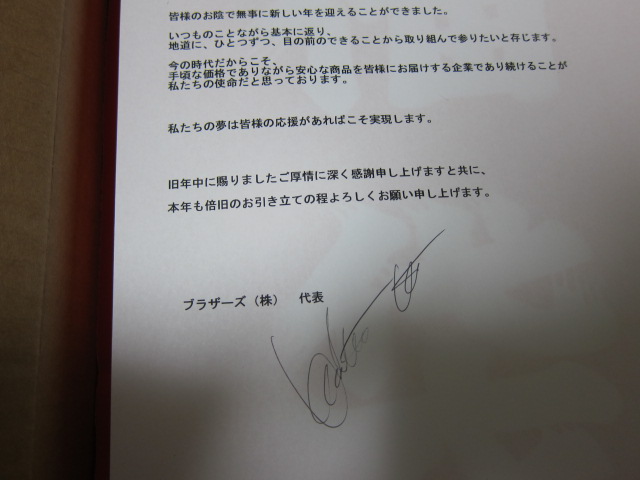 皆様のお陰で無事に新しい年を迎えることができました。
いつものことながら基本に返り、
地道に、ひとつずつ、目の前のできることから取り組んで参りたいと存じます。
今の時代だからこそ、
手頃な価格でありながら安心な商品を皆様にお届けする企業であり続けることが
私たちの使命だと思っております。
私たちの夢は皆様の応援があればこそ実現します。
旧年中に賜りましたご厚情に深く感謝申し上げますと共に、
本年も倍旧のお引き立ての程よろしくお願い申し上げます。
ブラザーズ（株） 代表